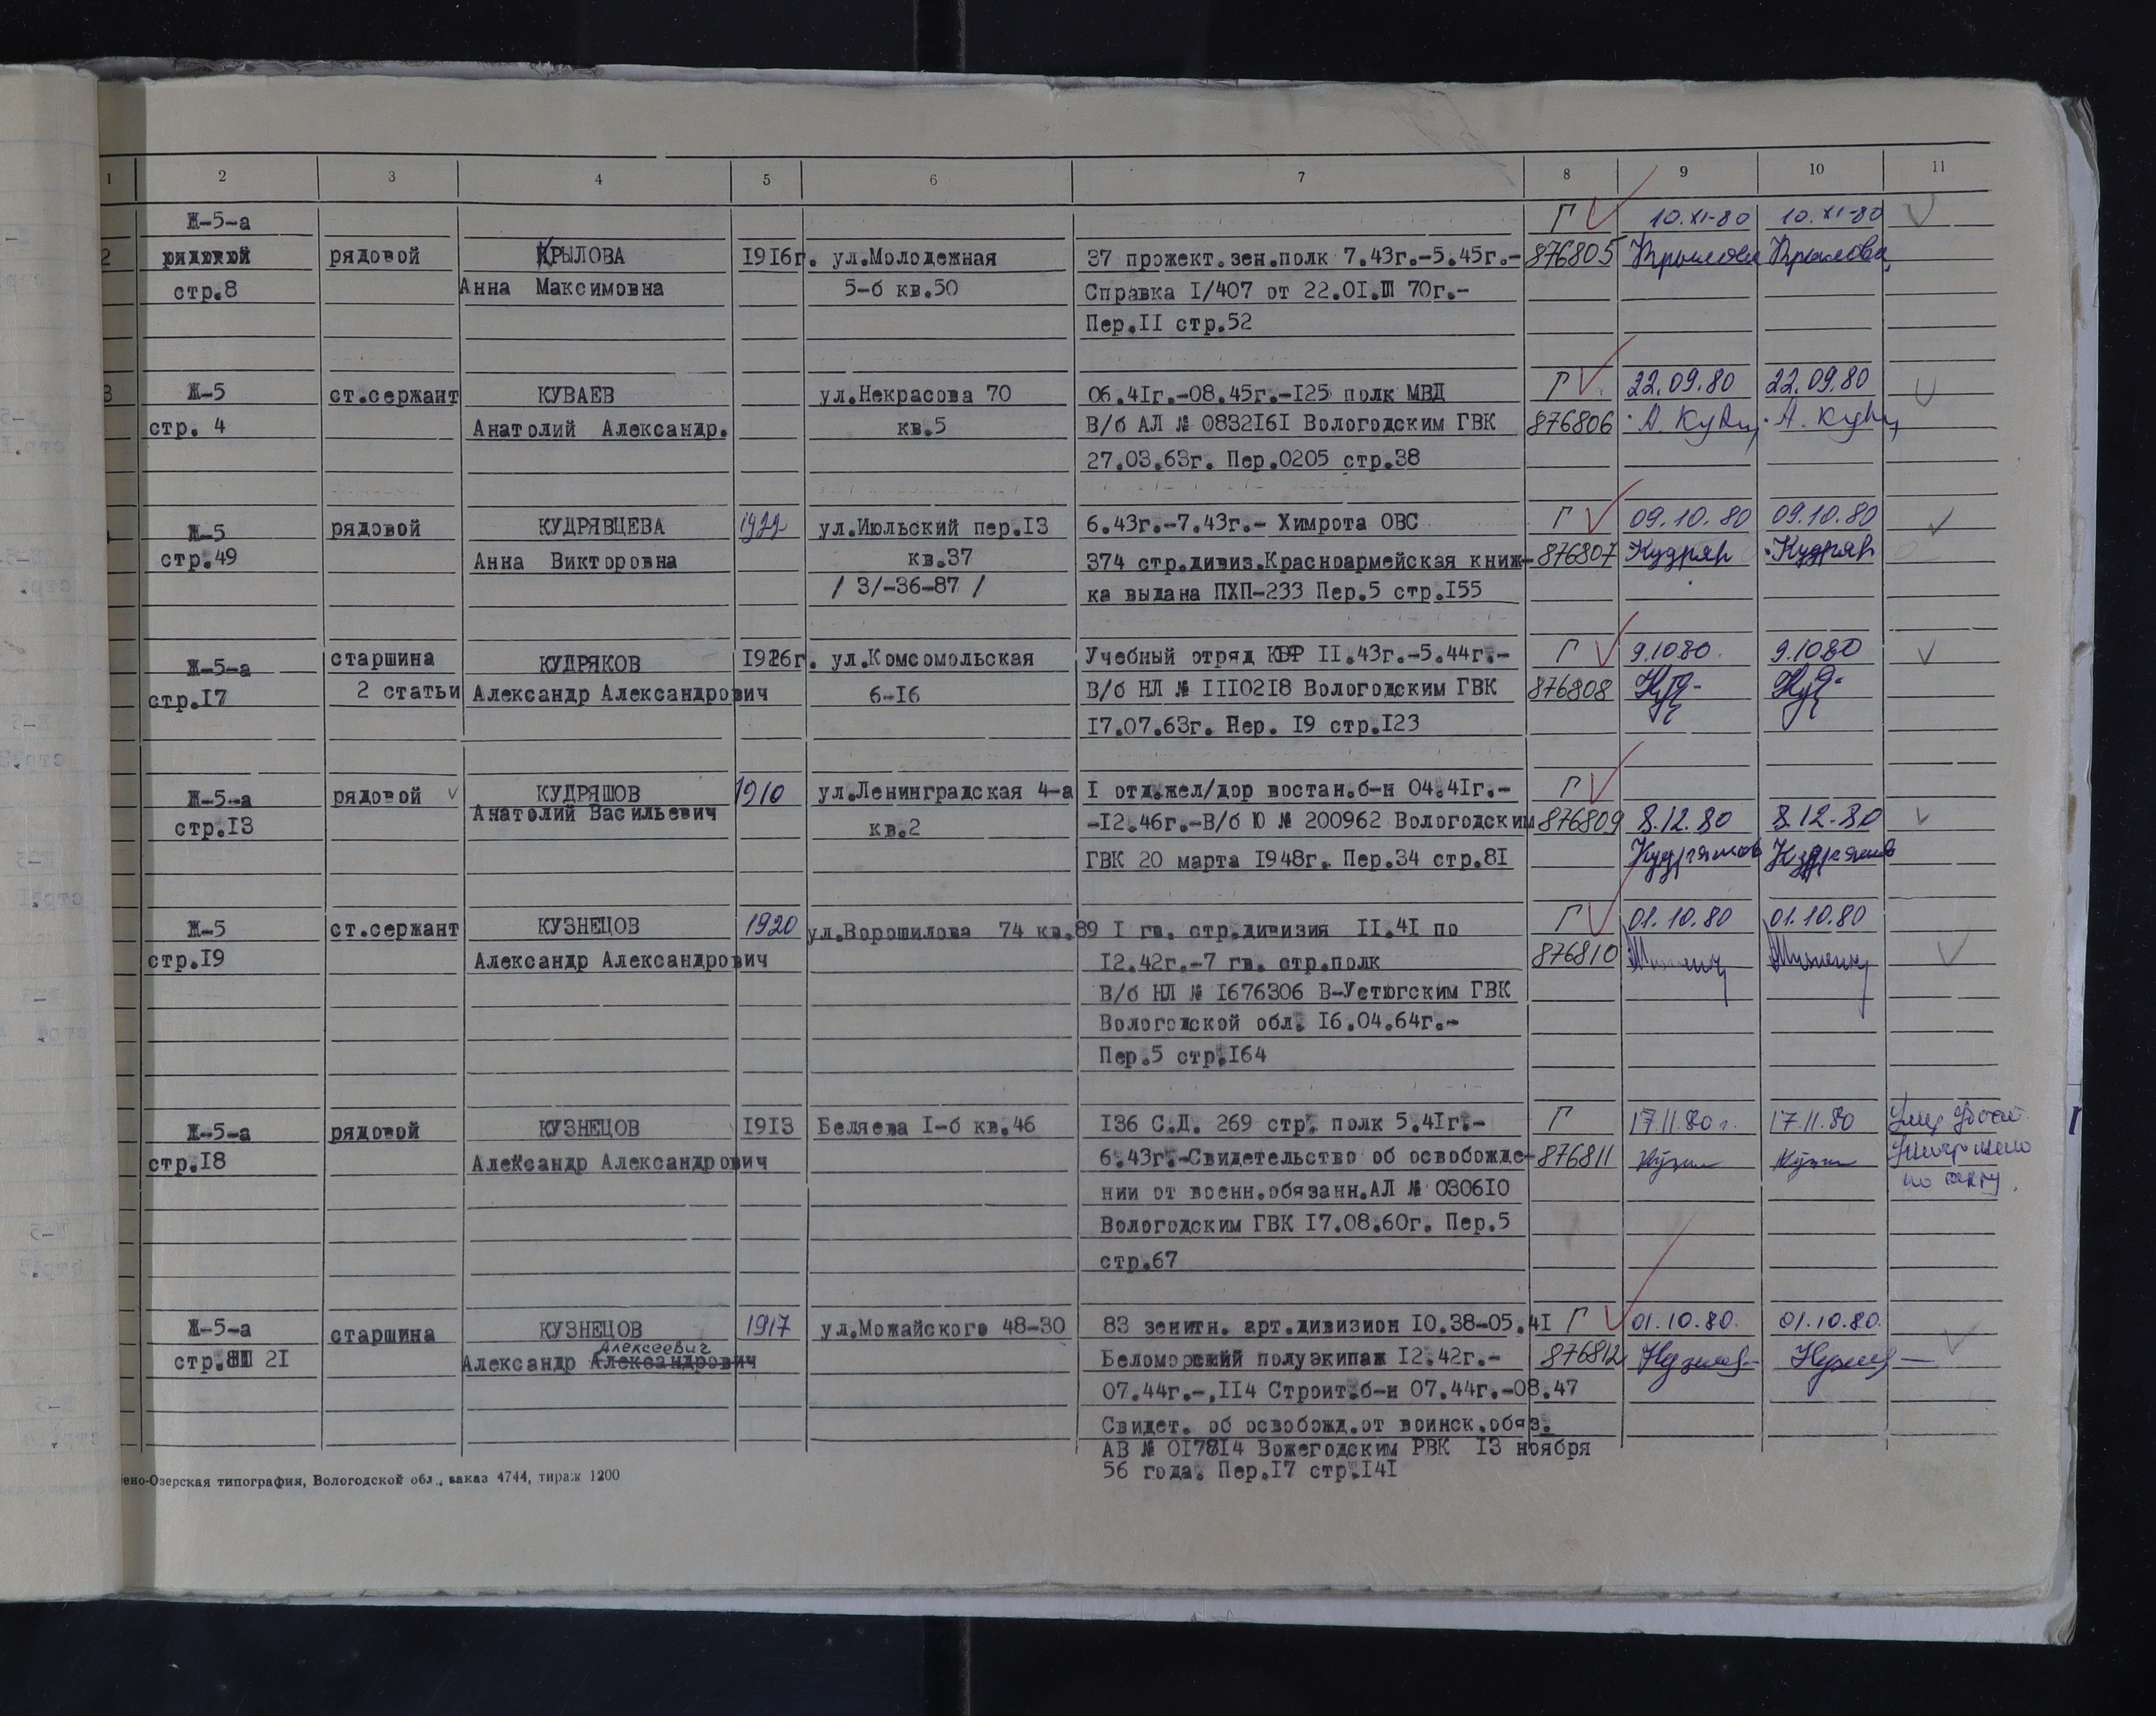 1 2 3 4 5 6 7 8 9 10 11
Ж-5-а Г 10.XI-80 10.XI-80
2 рядовой рядовой КРЫЛОВА 1916г. ул.Молодежная 37 прожект.зен.полк 7.43г.-5.45г.- 876805 Крылова Крылова
стр.8 Анна Максимовна 5-б кв.50 Справка I/407 от 22.01. 70г.-
Пер.II стр.52
3 Ж-5 ст.сержант КУВАЕВ ул.Некрасова 70 06.41г.-08.45г.-125 полк МВД Г 22.09.80 22.09.80
стр. 4 Анатолий Александр. кв.5 В/б АЛ № 0832161 Вологодским ГВК 876806
27.03.63г. Пер.0205 стр.38
Ж-5 рядовой КУДРЯВЦЕВА 1922 ул.Июльский пер.13 6.43г.-7.43г.- Химрота ОВС Г 09.10.80 09.10.80
стр.49 Анна Викторовна кв.37 374 стр.дивиз.Красноармейская книж- 876807 Кудряв Кудряв
/ 3/-36-87 / ка выдана ПХП-233 Пер.5 стр.155
Ж-5-а старшина КУДРЯКОВ 1926г. ул.Комсомольская Учебный отряд КБФ II.43г.-5.44г.- Г 9.10 80. 9.10 80
стр.17 2 статьи Александр Александрович 6-16 В/б НЛ № 1110218 Вологодским ГВК 876808
17.07.63г. Пер. 19 стр.123
Ж-5-а рядовой КУДРЯШОВ 1910 ул.Ленинградская 4-а I отд.жел/дор востан.б-н 04.41г.- Г
стр.13 Анатолий Васильевич кв.2 -12.46г.-В/б Ю № 200962 Вологодским 876809 8.12.80 8.12.80
ГВК 20 марта 1948г. Пер.34 стр.81 Кудряшов Кудряшов
Ж-5 ст.сержант КУЗНЕЦОВ 1920 ул.Ворошилова 74 кв.89 I гв. стр.дивизия II.41 по Г 01.10.80 01.10.80
стр.19 Александр Александрович 12.42г.-7 гв. стр.полк 876810
В/б НЛ № 1676306 В-Устюгским ГВК
Вологодской обл. 16.04.64г.-
Пер.5 стр.164
Ж-5-а рядовой КУЗНЕЦОВ 1913 Беляева I-б кв.46 136 С.Д. 269 стр. полк 5.41г.- Г 17.11.80г. 17.11.80
стр.18 Александр Александрович 6.43г.-Свидетельство об освобожде- 876811
нии от военн.обязанн.АЛ № 030610 по акту.
Вологодским ГВК 17.08.60г. Пер.5
стр.67
Ж-5-а старшина КУЗНЕЦОВ 1917 ул.Можайского 48-30 83 зенитн. арт.дивизион 10.38-05.41 Г 01.10.80. 01.10.80.
Алексеевич
стр. 21 Александр Александрович Беломорский полуэкипаж 12.42г.- 876812
07.44г.-,114 Строит.б-н 07.44г.-08.47
Свидет. об освобожд.от воинск.обяз.
АВ № 017814 Вожегодским РВК 13 ноября
56 года. Пер.17 стр.141
ено-Озерская типография, Вологодской обл., заказ 4744, тираж 1200